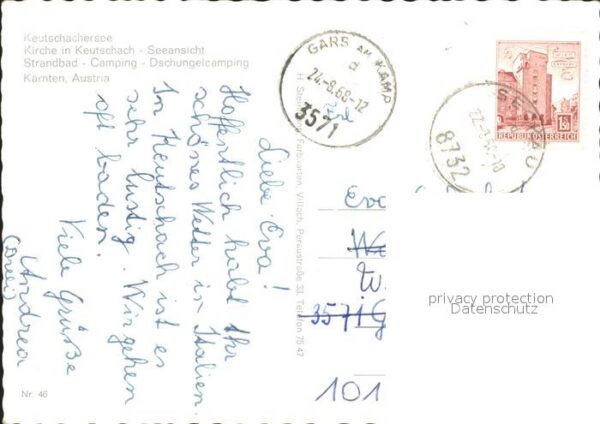 Keutschachersee
Kirche in Keutschach - Seeansicht
Strandbad - Camping - Dschungelcamping
Kärnten, Austria
GARS AM KAMP
d
24.-8.68-12
3571
8732
1.50
REPUBLIK ÖSTERREICH
Liebe Eva!
Hoffentlich habt Ihr
schönes Wetter in Italien.
In Keutschach ist es
sehr lustig. Wir gehen
oft baden.
Viele Grüße
Andrea
(Dreei)
Farbkarten, Villach, Peraustraße 33, Telefon 7547
Eva
W.
3571 G
101
privacy protection
Datenschutz
Nr. 46